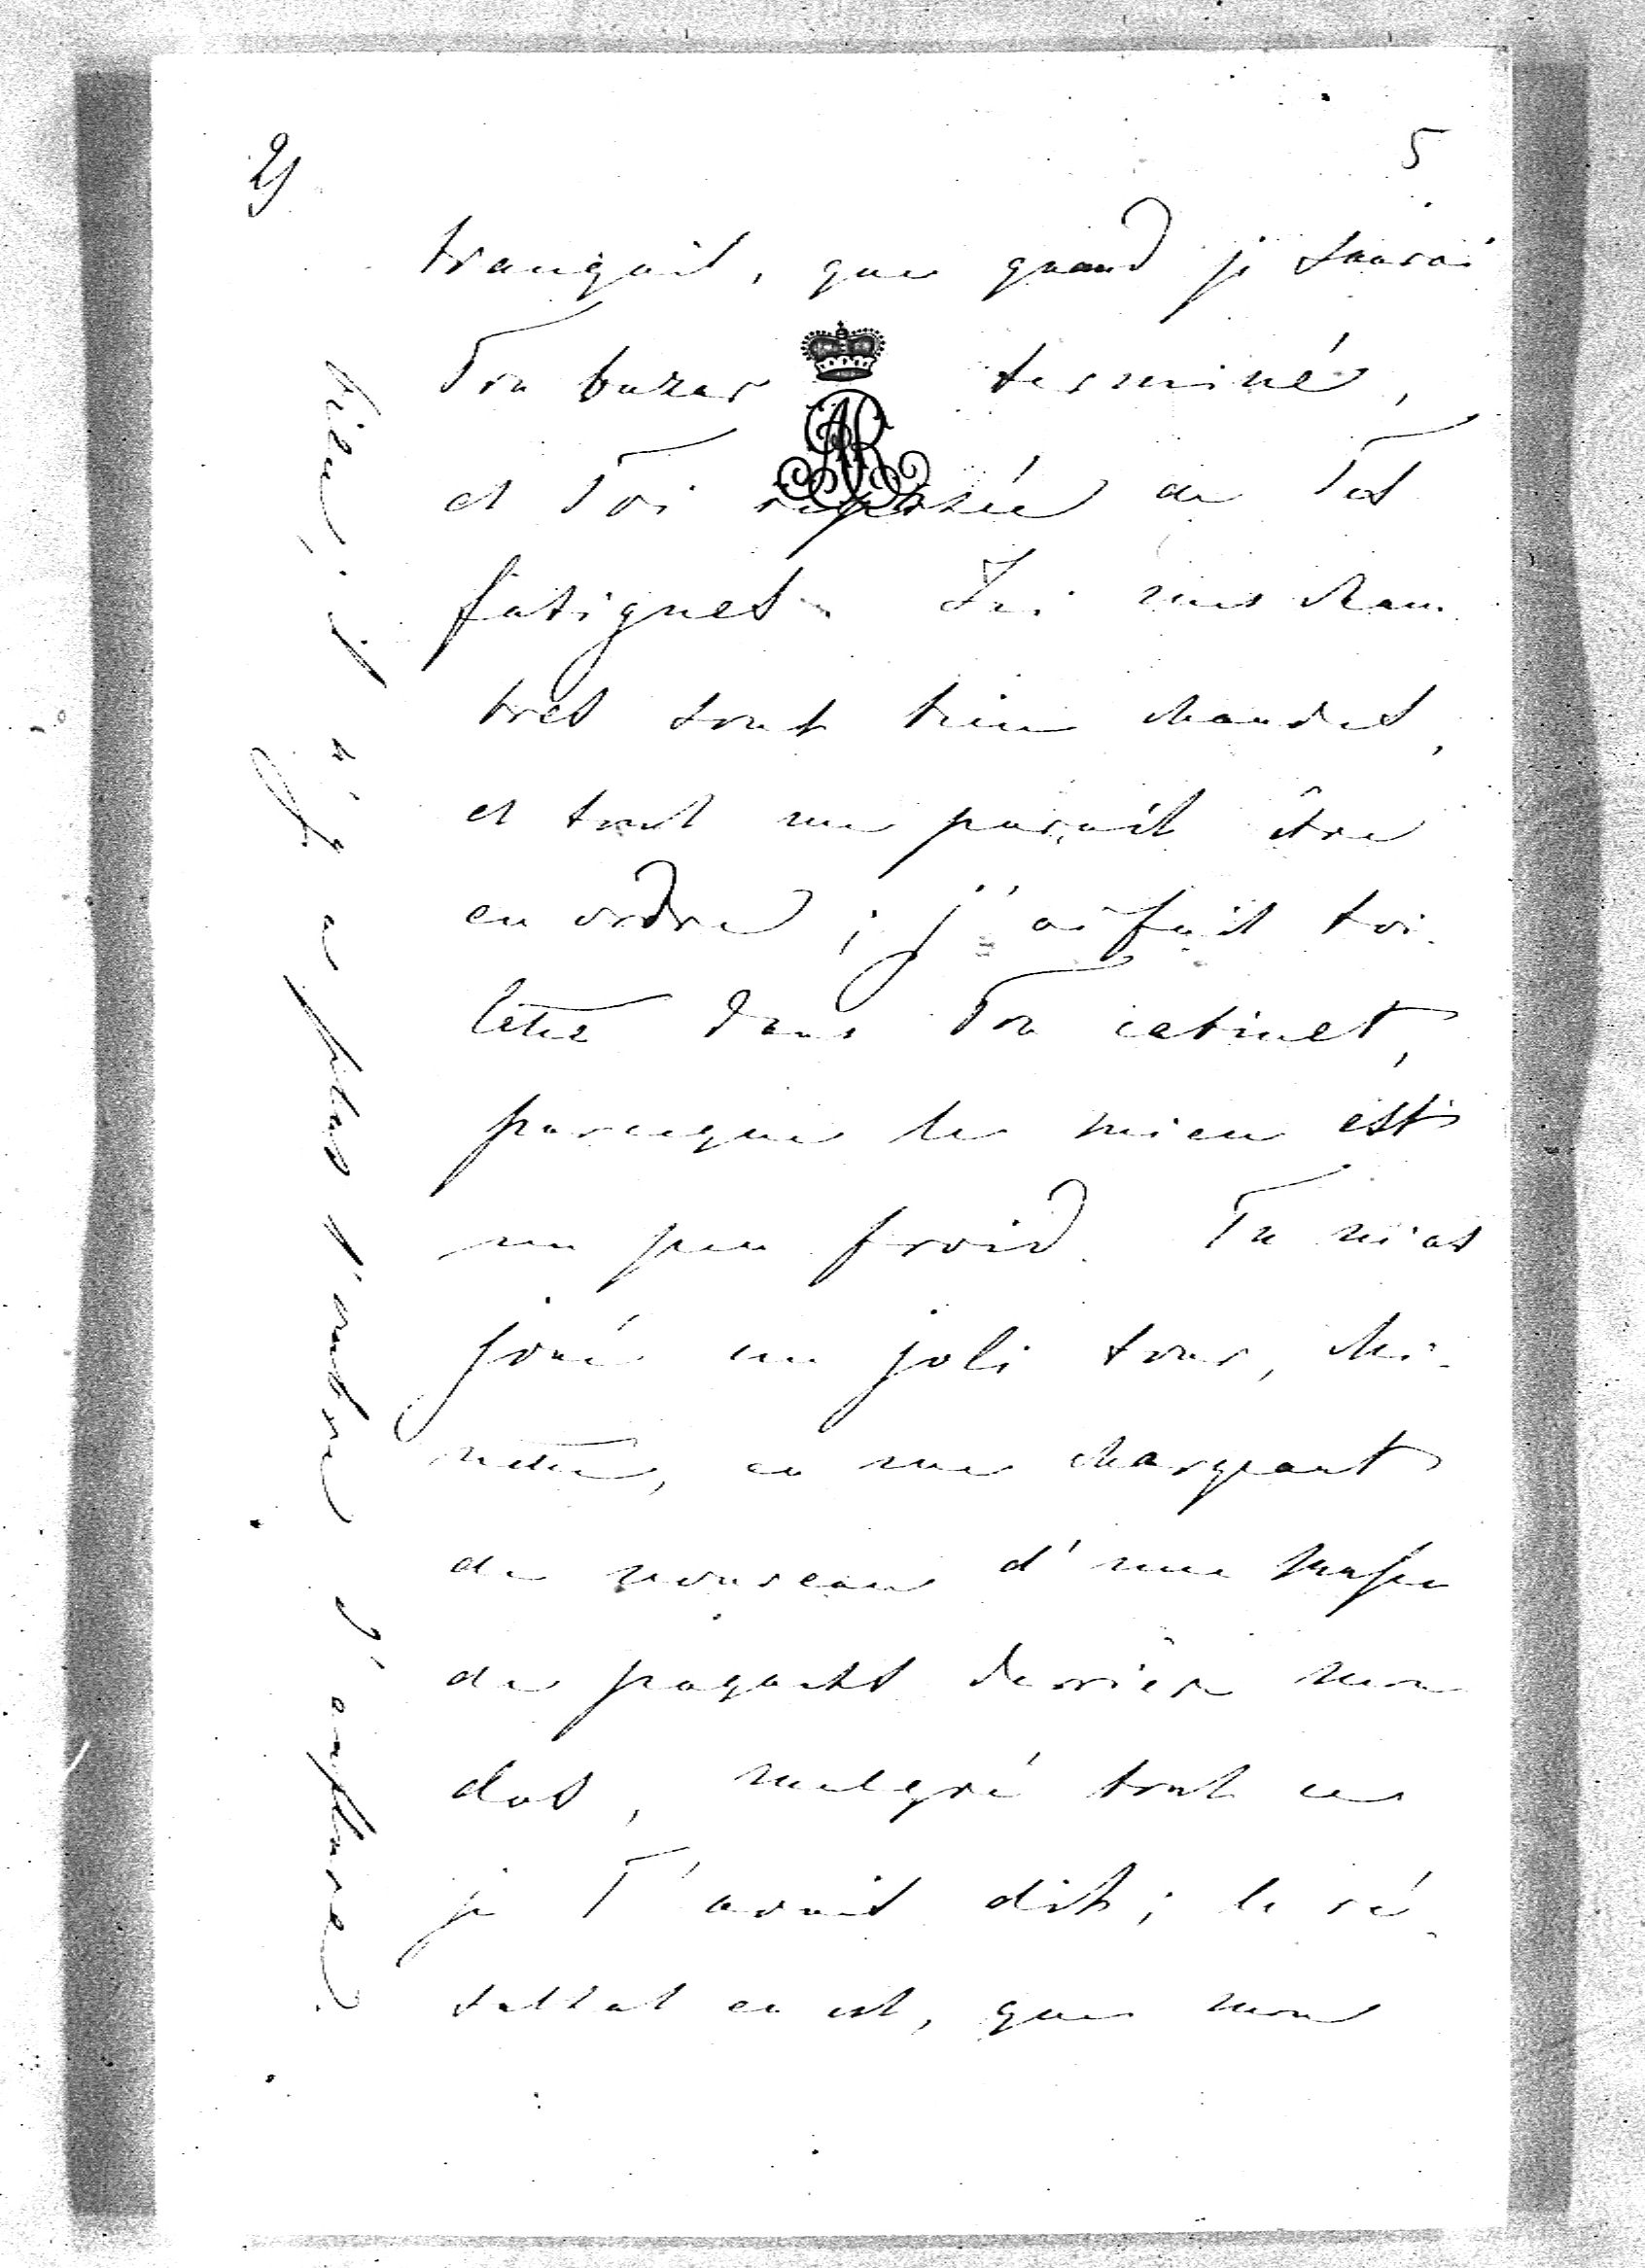 2)
5
tranquil, que quand je saurai
Ton bazar terminé,
et Toi reposée de Tes
fatigues. Ici mes cham-
bres sont bien chaudes,
et tout me parait être
en ordre; j'ai fait toi-
lette dans Ton cabinet,
parceque le mien est
un peu froid. Tu m'as
joué un joli tour, Mi-
nette, en me chargeant
de nouveau d'une masse
de paquets derrière mon
dos, malgré tout ce
je T'avais dit; le ré-
sultat en est, que mon
bien, il n'y a plus d'ombre d'enflure.
AR